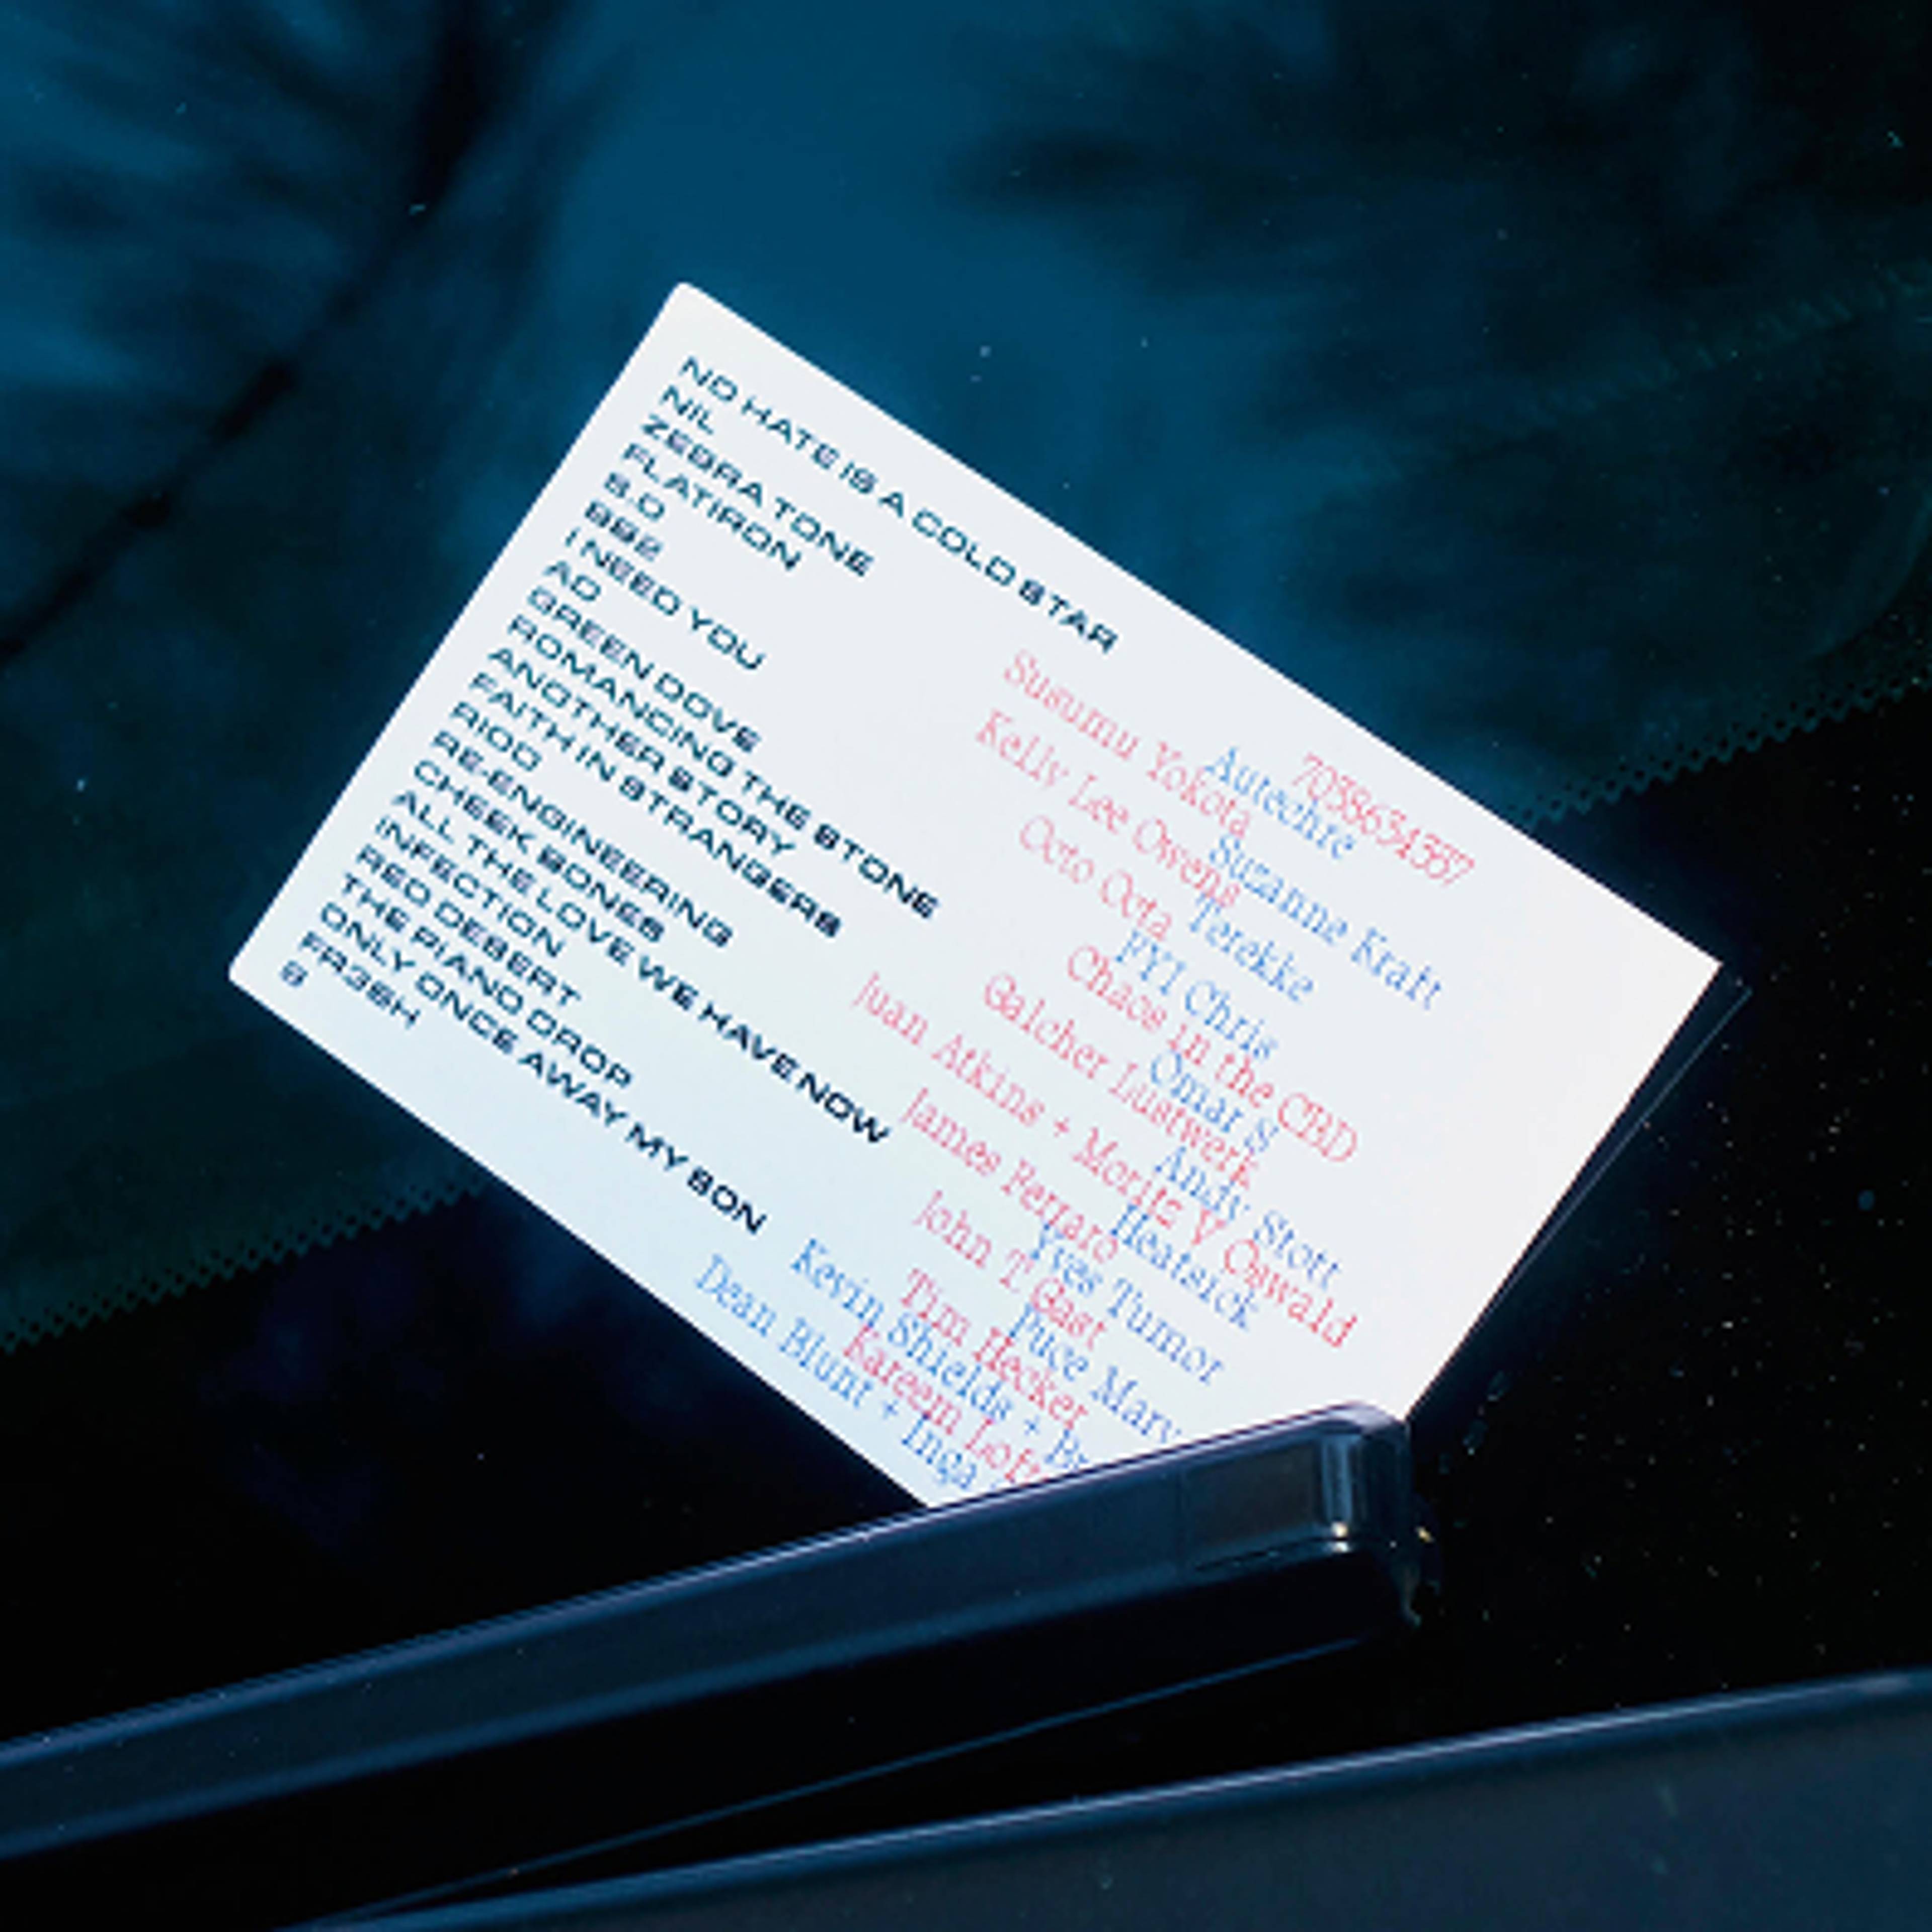 NO HATE IS A COLD STAR
NIL
ZEBRA TONE
FLATIRON
8.0
BB2
I NEED YOU
AD
GREEN DOVE
ROMANCING THE STONE
ANOTHER STORY
FAITH IN STRANGERS
RIOD
RE-ENGINEERING
CHEEK BONES
ALL THE LOVE WE HAVE NOW
INFECTION
RED DESERT
THE PIANO DROP
ONLY ONCE AWAY MY SON
FR3SH
9
7038634357
Autechre
Susumu Yokota
Suzanne Kraft
Kelly Lee Owens
Terekke
Octo Octa
FYI Chris
Chaos in the CBD
Omar S
Galcher Lustwerk
Andy Stott
Juan Atkins + Moritz V Oswald
Heatsick
James Ferraro
Yves Tumor
John T. Gast
Puce Mary
Tim Hecker
Kevin Shields +
Kareem
Dean Blunt + Inga